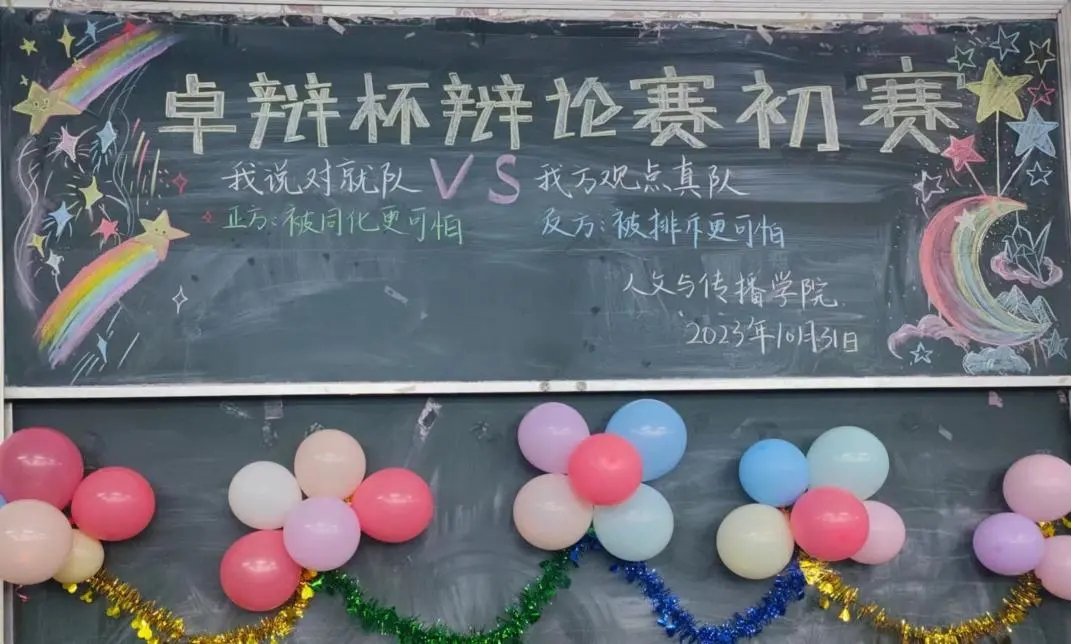 卓辩杯辩论赛初赛
我说对就队 VS 我方观点真队
正方：被同化更可怕 反方：被排斥更可怕
人文与传播学院
2023年10月31日